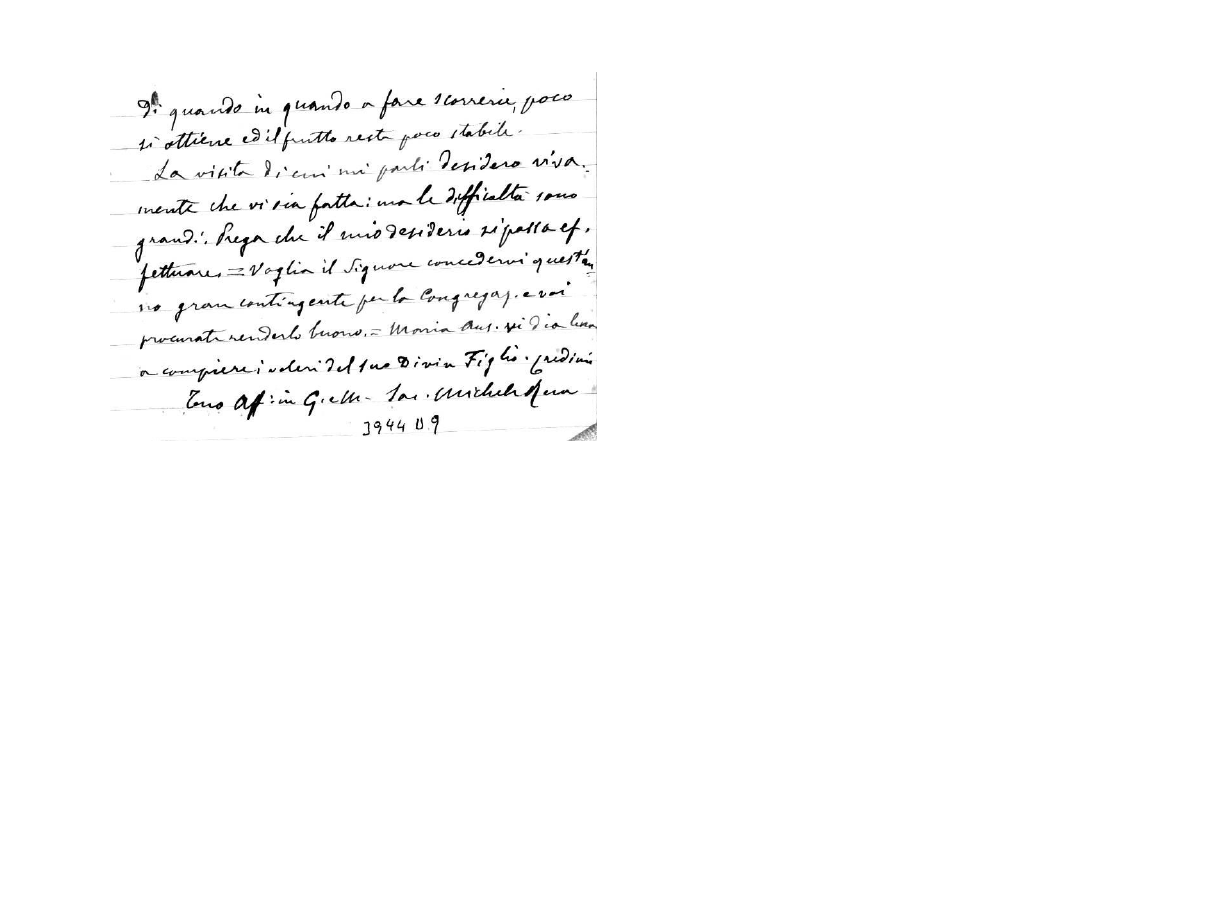 Di quando in quando a fare scorrerie, poco
si ottiene ed il frutto resta poco stabile.
La visita di cui mi parli desidero viva-
mente che vi sia fatta: ma le difficoltà sono
grandi. Prega che il mio desiderio si possa ef-
fettuare. = Voglia il Signore concedervi quest'an
no gran contingente per la Congregaz. e voi
procurate renderlo buono. = Maria Aus. vi dia lena
a compiere i voleri del suo Divin Figlio. Credimi
Tuo Aff: in G. e M. Sac. Michele Rua
3944 D 9